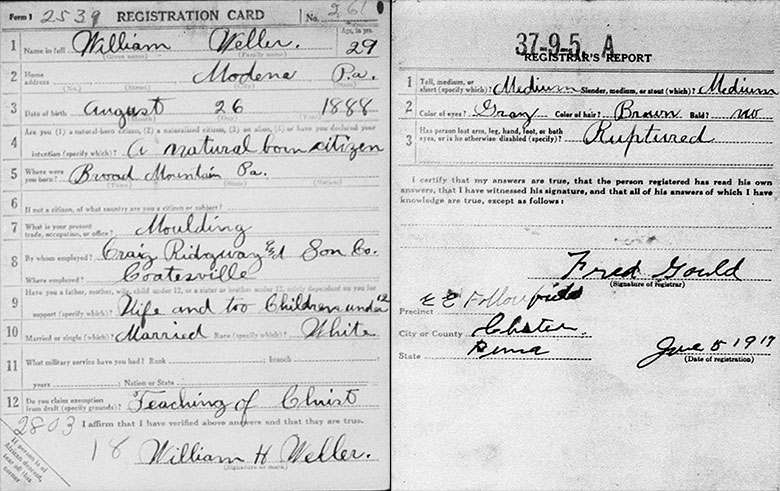 Form 1 2539 REGISTRATION CARD No. 261
1 Name in full William Weller. Age, in yrs. 29
(Given name) (Family name)
2 Home address Modena Pa.
(No.) (Street) (City) (State)
3 Date of birth August 26 1888
Are you (1) a natural-born citizen, (2) a naturalized citizen, (3) an alien, (4) or have you declared your
4 intention (specify which)? A natural born citizen
5 Where were you born? Broad Mountain Pa.
(Town) (State) (Nation)
6 If not a citizen, of what country are you a citizen or subject?
7 What is your present trade, occupation, or office? Moulding
8 By whom employed? Craig Ridgway & Son Co.
Where employed? Coatesville
Have you a father, mother, wife, child under 12, or a sister or brother under 12, solely dependent on you for
9 support (specify which)? Wife and too Children under 12
10 Married or single (which)? Married Race (specify which)? White
11 What military service have you had? Rank ; branch
years ; Nation or State
12 Do you claim exemption from draft (specify grounds)? Teaching of Christ
2803 I affirm that I have verified above answers and that they are true.
18 William H Weller.
(Signature or mark)
If person is of African descent, tear off this corner
37-9-5 A
REGISTRAR'S REPORT
1 Tall, medium, or short (specify which)? Medium Slender, medium, or stout (which)? Medium
2 Color of eyes? Gray Color of hair? Brown Bald? no
3 Has person lost arm, leg, hand, foot, or both eyes, or is he otherwise disabled (specify)? Ruptured
I certify that my answers are true, that the person registered has read his own
answers, that I have witnessed his signature, and that all of his answers of which I have
knowledge are true, except as follows:
Fred Gould
(Signature of registrar)
Precinct E Fallowfield
City or County Chester.
State Penna June 5 1917
(Date of registration)